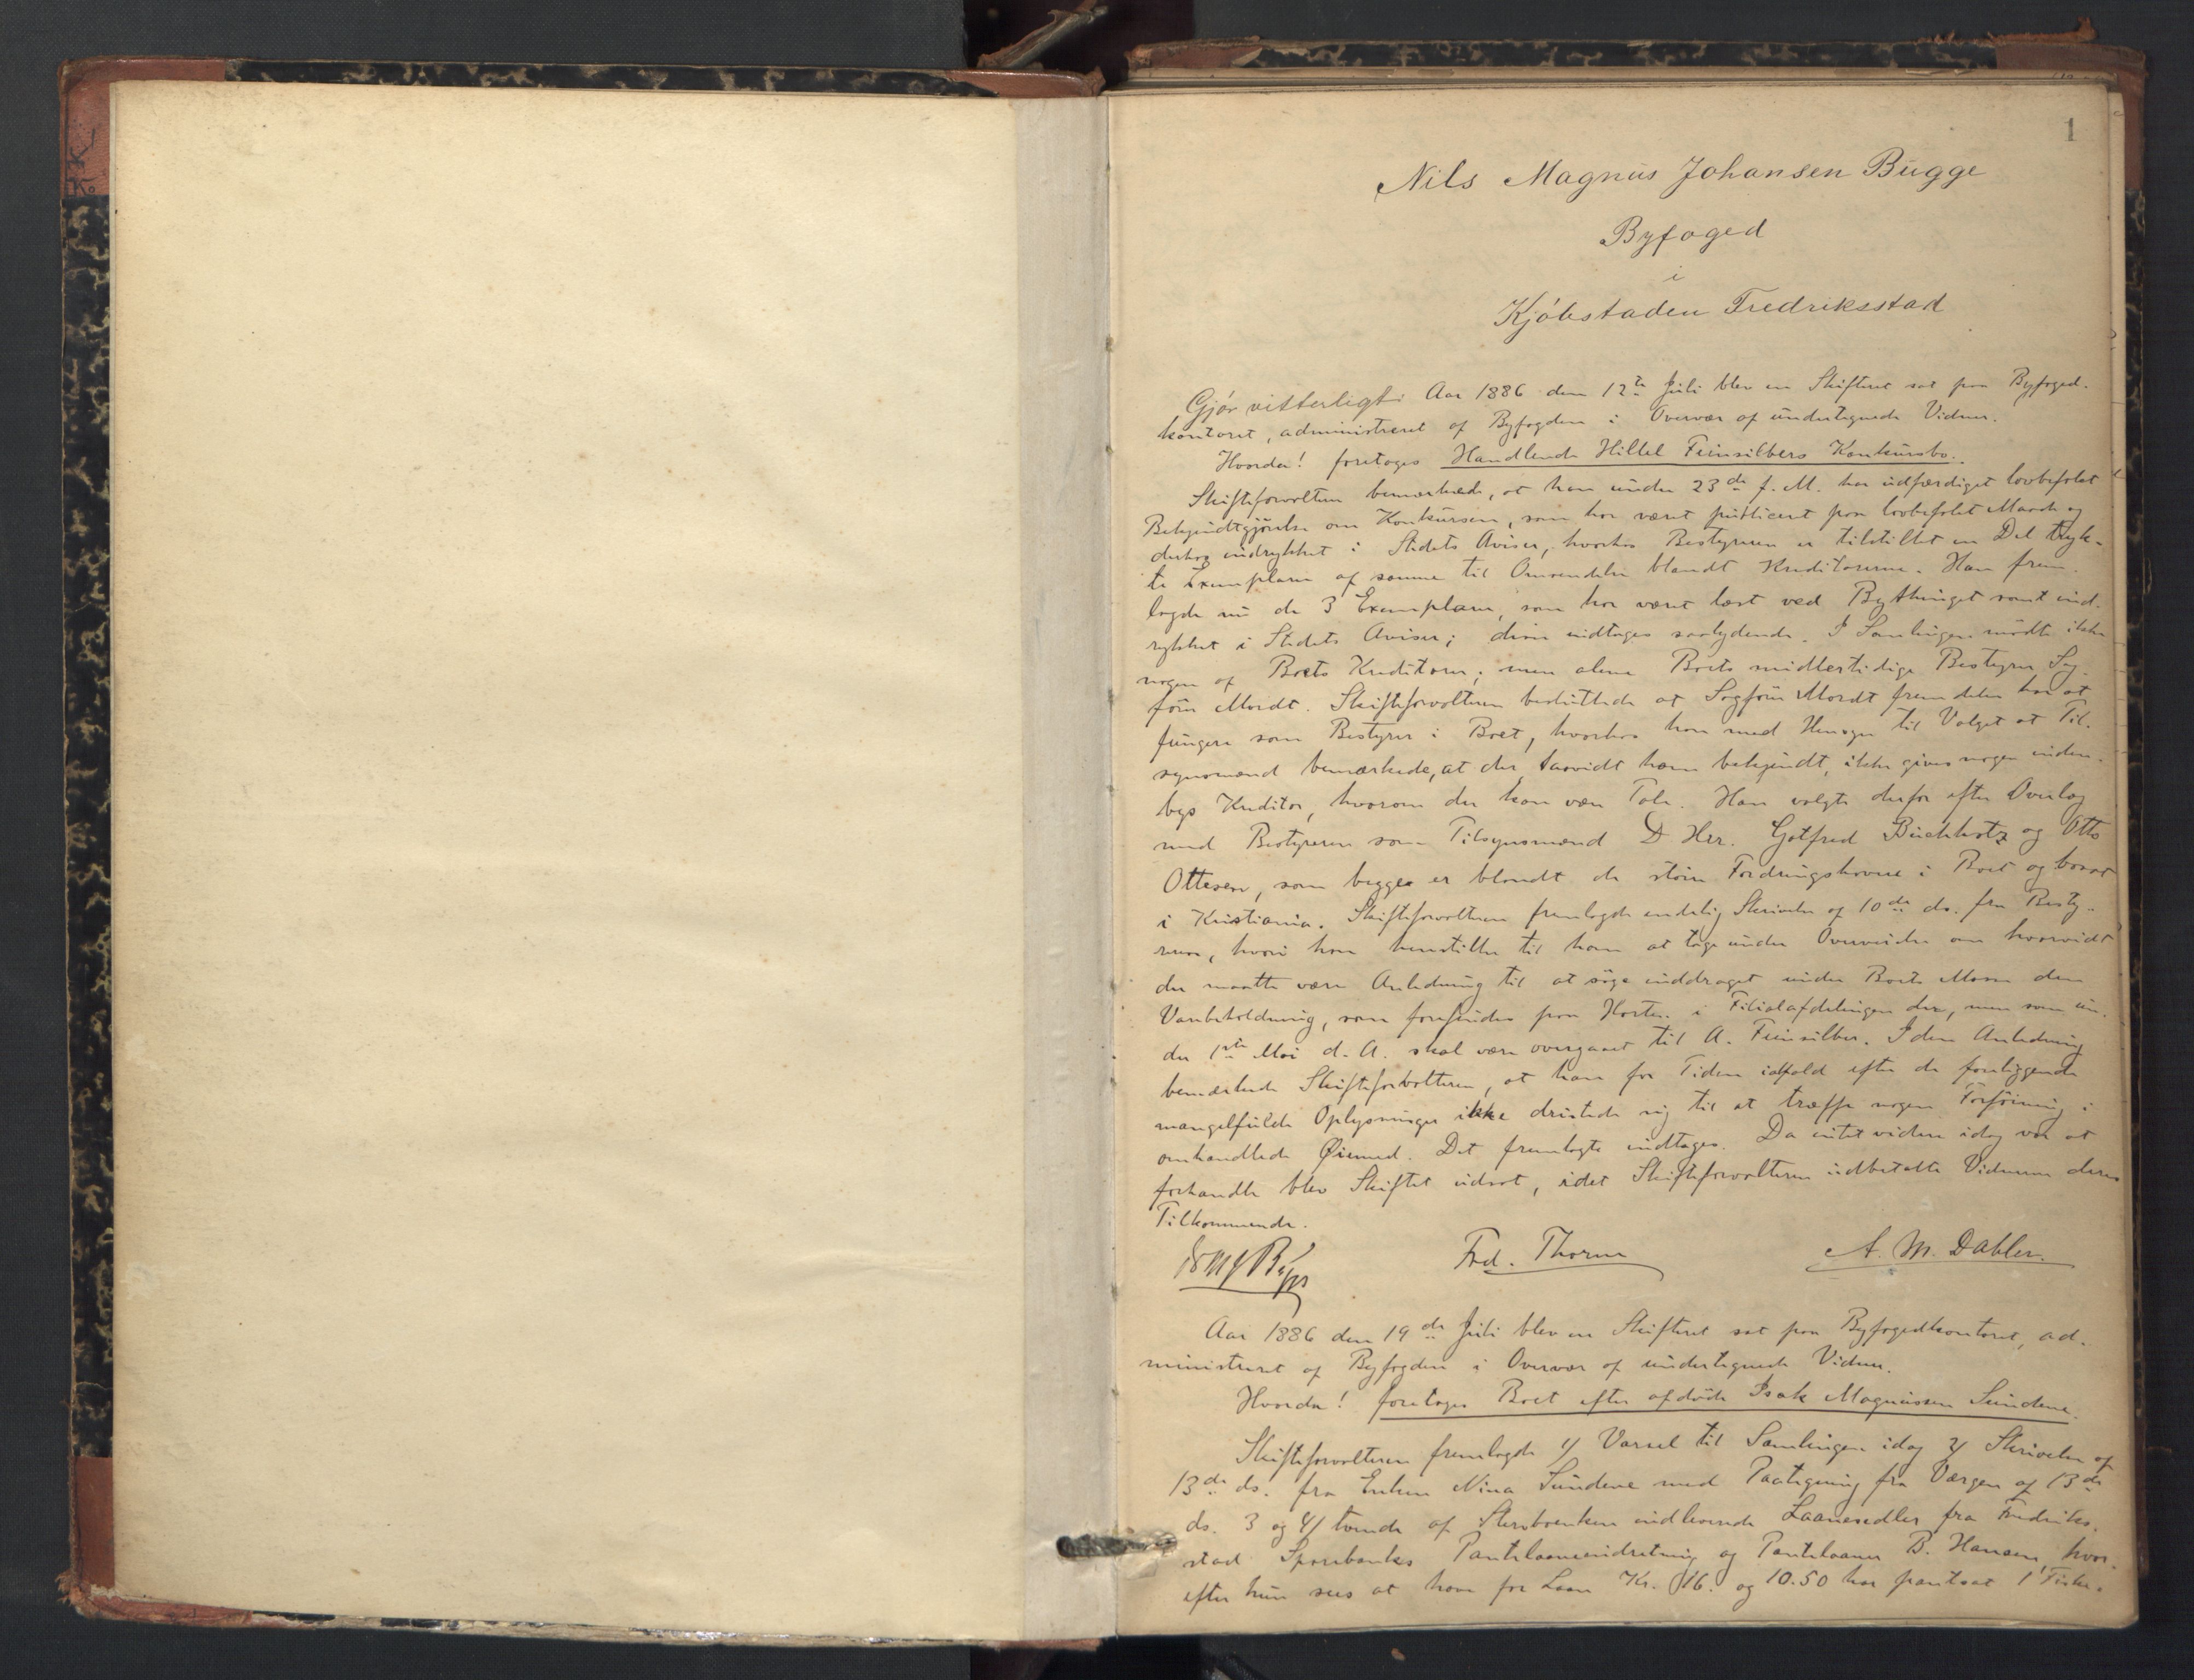 1
Nils Magnus Johansen Bugge
Byfoged
i
Kjøbstaden Fredriksstad
Gjør vitterligt: Aar 1886 den 12te Juli blev en Skifteret sat paa Byfoged-
kontoret, administreret af Byfogden i Overvær af undertegnede Vidner.
Hvorda! foretoges Handlende Hillel Feinsilbers Konkursbo.
Skifteforvalteren bemærkede, at han under 23de f. M. har udfærdiget lovbefalet
Bekjendtgjørelse om Konkursen, som har været publiceret paa lovbefalet Maade og
derhos indrykket i Stedets Aviser, hvorhos Bestyreren er tilstillet en Del tryk-
te Exemplarer af samme til Omsendelse blandt Kreditorerne. Han frem-
lagde nu de 3 Exemplarer, som har været læst ved Bythinget samt ind-
rykket i Stedets Aviser; disse indtages saalydende. I Samlingen mødte ikke
nogen af Boets Kreditorer; men alene Boets midlertidige Bestyrer Sag-
fører Mordt. Skifteforvalteren besluttede at Sagfører Mordt fremdeles har at
fungere som Bestyrer i Boet, hvorhos han med Hensyn til Valget at Til-
synsmænd bemærkede, at der, saavidt ham bekjendt, ikke gives nogen inden-
bys Kreditor, hvorom der kan være Tale. Han valgte derfor efter Overlæg
med Bestyreren som Tilsynsmænd D Hrr. Gotfred Buchholz og Otto
Ottesen, som begge er blandt de større Fordringshavere i Boet og bosat
i Kristiania. Skifteforvalteren fremlagde endelig Skrivelse af 10de ds. fra Besty-
reren, hvori han henstiller til ham at tage under Overveielse om hvorvidt
der maatte være Anledning til at søge inddraget under Boets Masse den
Varebeholdning, som forefindes paa Horten i Filialafdelingen der, men som un-
der 1ste Mai d. A. skal være overgaaet til A. Feinsilber. I den Anledning
bemærkede Skifteforvalteren, at han for Tiden ialfald efter de foreliggende
mangelfulde Oplysninger ikke dristede sig til at træffe nogen Forføining i
omhandlede Øiemed. Det fremlagte indtages. Da intet videre idag var at
forhandle blev Skiftet udsat, idet Skifteforvalteren udbetalte Vidnerne deres
Tilkommende.
NMJBugge Fred. Thorne A. M. Dahler.
Aar 1886 den 19de Juli blev en Skifteret sat paa Byfogedkontoret, ad-
ministreret af Byfogden i Overvær af undertegnede Vidner.
Hvorda! foretoges Boet efter afdøde Isak Magnussen Sundene.
Skifteforvalteren fremlagde 1/ Varsel til Samlingen idag 2/ Skrivelse af
13de ds. fra Enken Nina Sundene med Paategning fra Værgen af 13de
ds. 3 og 4/ tvende af Stervboenken indleverede Laanesedler fra Fredriks-
stad Sparebanks Pantelaaneindretning og Pantelaaner B. Hansen, hvor-
efter hun sees at have for Laan Kr. 16. og 10.50 har pantsat 1 Fiske-